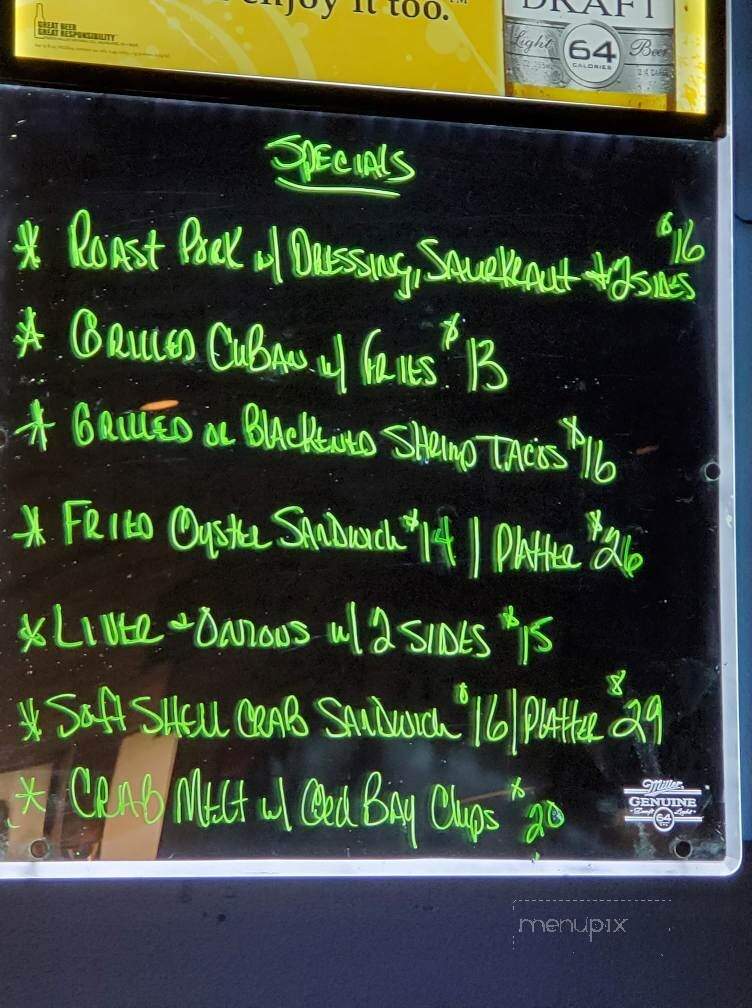 enjoy it too.™
GREAT BEER
GREAT RESPONSIBILITY
DRAFT
Light 64 Beer
CALORIES
SPECIALS
* ROAST PORK w/ DRESSING, SAURKRAUT + 2 SIDES $16
* GRILLED CUBAN w/ FRIES $13
* GRILLED OR BLACKENED SHRIMP TACOS $16
* FRIED OYSTER SANDWICH $14 | PLATTER $26
* LIVER + ONIONS w/ 2 SIDES $15
* SOFT SHELL CRAB SANDWICH $16 | PLATTER $29
* CRAB MELT w/ OLD BAY CHIPS $20
Miller
GENUINE
Draft 64 Light
menupix